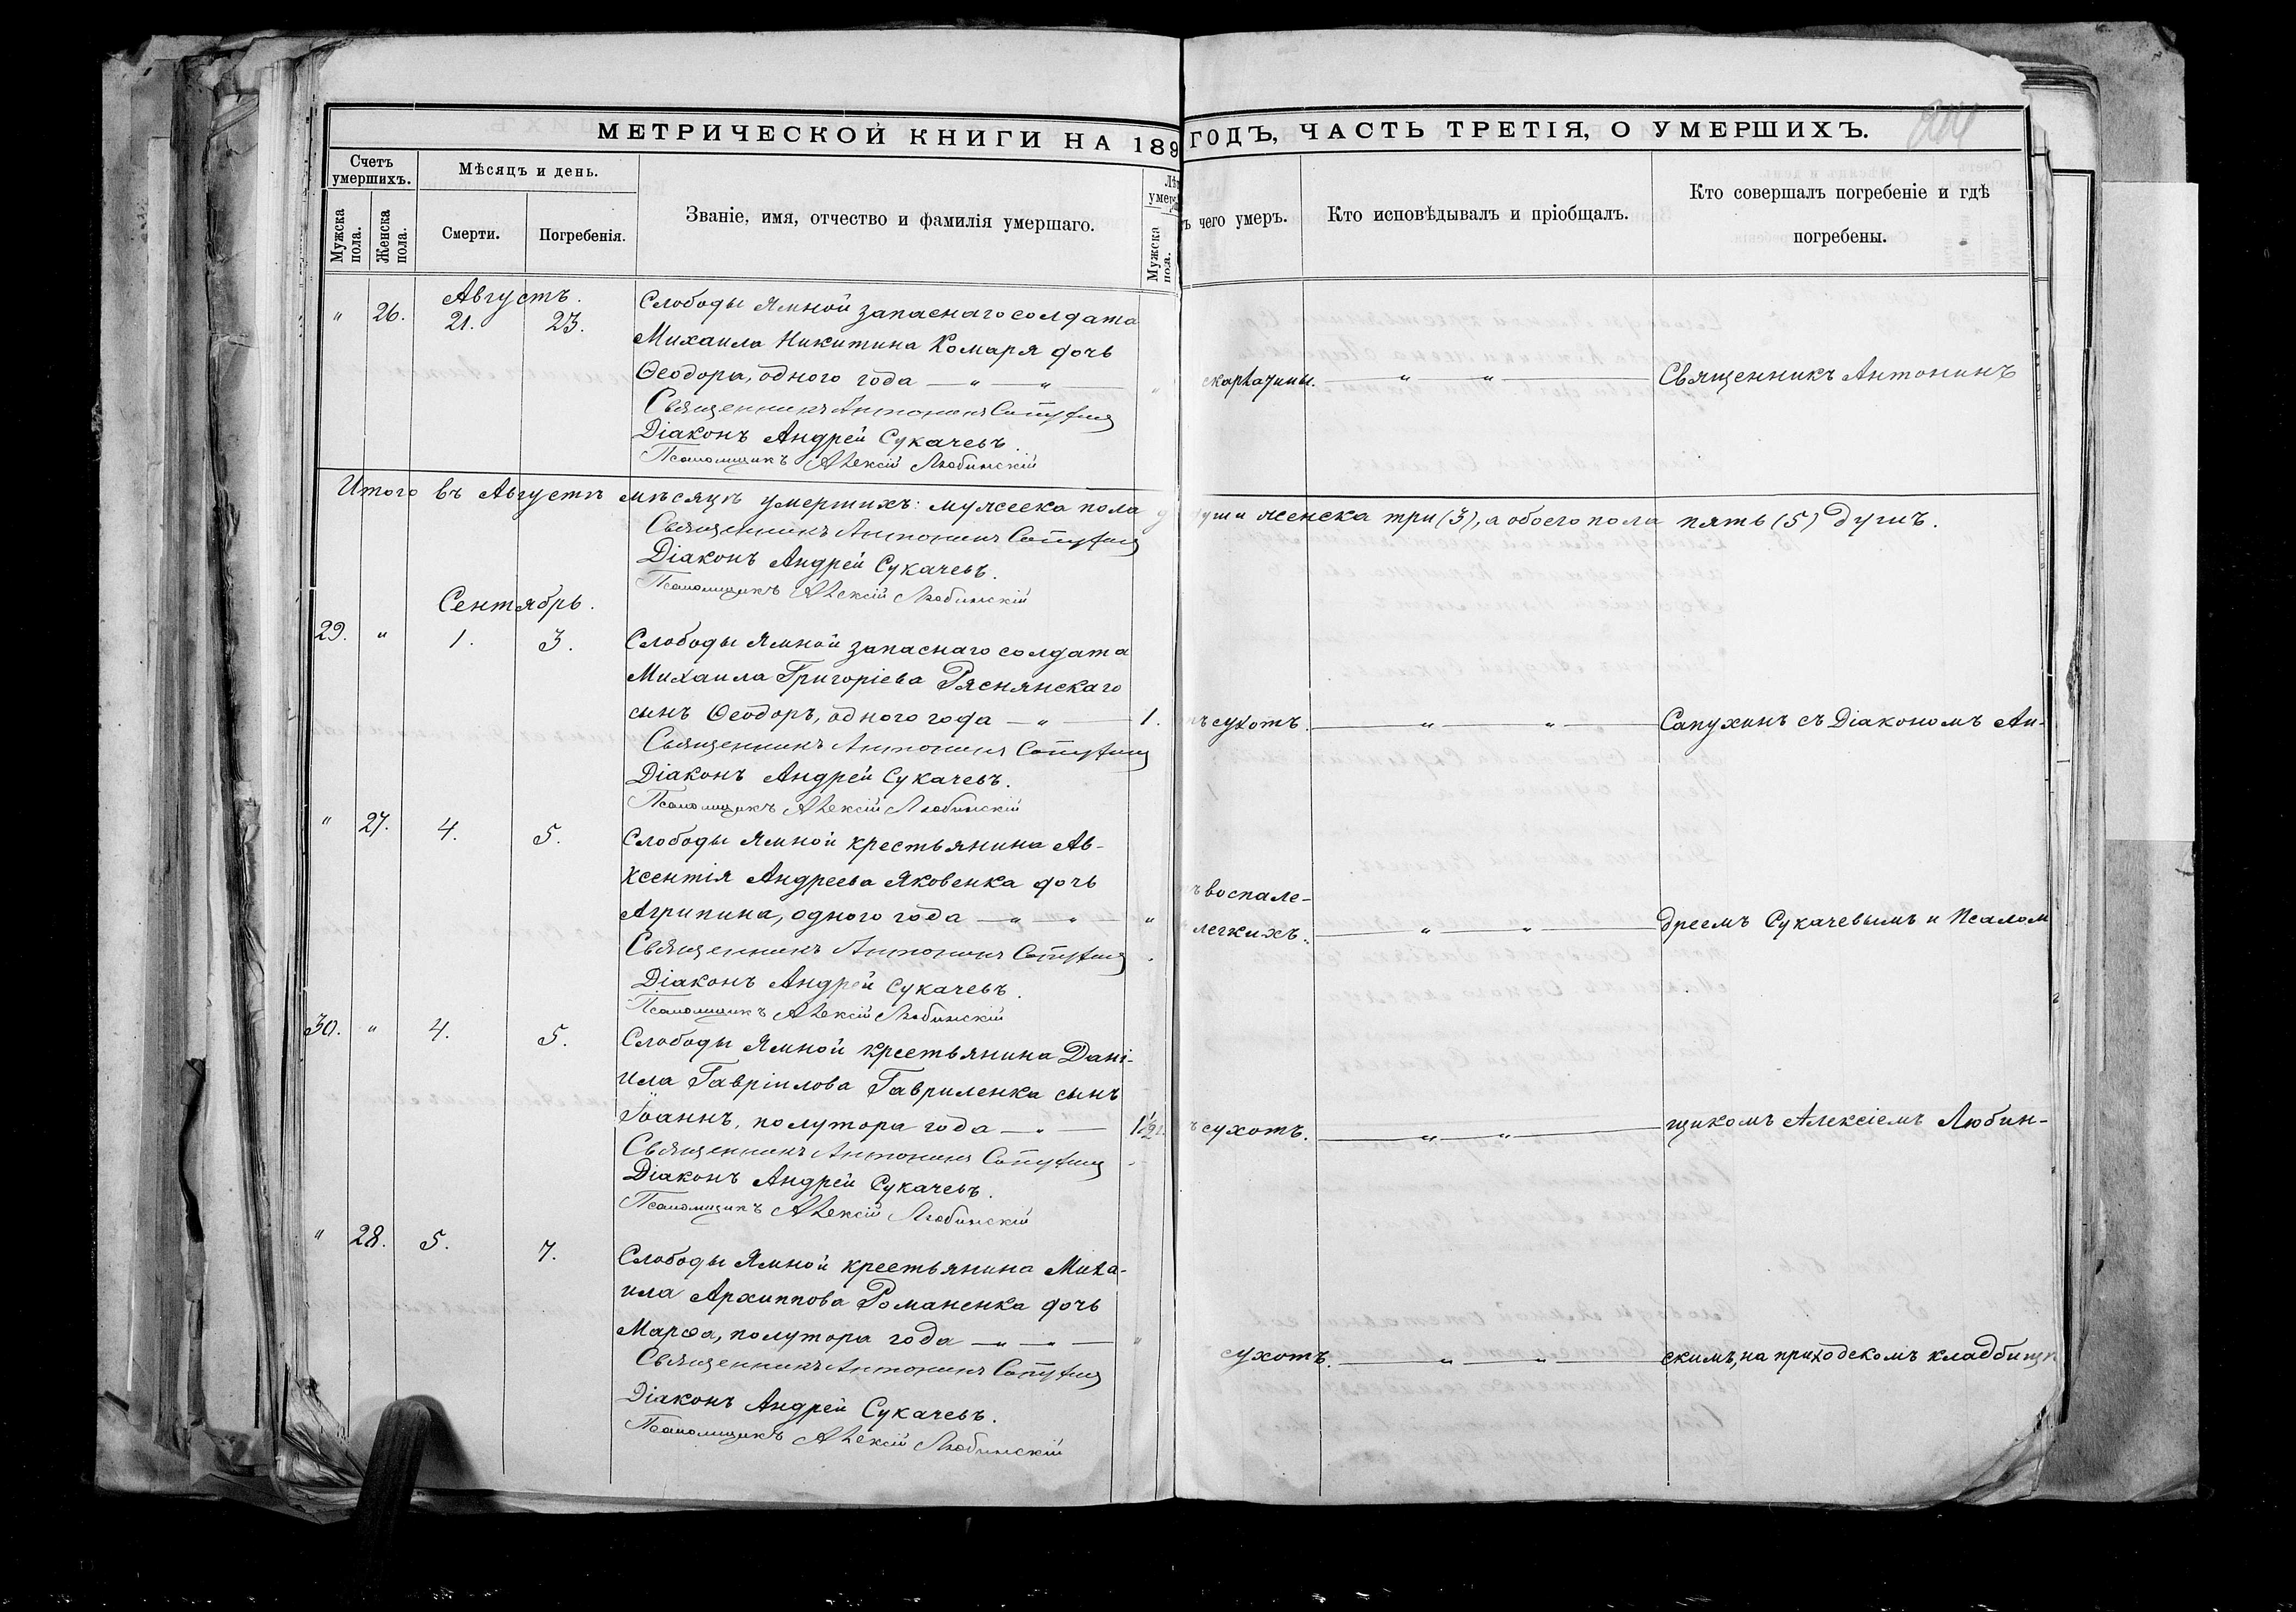 МЕТРИЧЕСКОЙ КНИГИ НА 189
ГОДЪ, ЧАСТЬ ТРЕТІЯ, О УМЕРШИХЪ.
Счетъ умершихъ.
Мужска пола.
Женска пола.
Мѣсяцъ и день.
Смерти.
Погребенія.
Званіе, имя, отчество и фамилія умершаго.
Мужска пол.
чего умеръ.
Кто исповѣдывалъ и пріобщалъ.
Кто совершалъ погребеніе и гдѣ
погребены.
Августъ.
" 26. 21. 23.
Слободы Ямной запаснаго солдата
Михаила Никитина Комаря дочь
Ѳеодора, одного года — " — " —
скарлатины. — " — " — Священникъ Антонинъ
Священникъ Антонинъ Сапухинъ
Діаконъ Андрей Сукачевъ.
Псаломщикъ Алексій Любинскій
Итого въ Августѣ мѣсяцѣ умершихъ: мужеска пола
души женска три (3), а обоего пола пять (5) душъ.
Священникъ Антонинъ Сапухинъ
Діаконъ Андрей Сукачевъ.
Псаломщикъ Алексій Любинскій
Сентябрь.
29. " 1. 3.
Слободы Ямной запаснаго солдата
Михаила Григоріева Ряснянскаго
сынъ Ѳеодоръ, одного года — " — 1.
сухотъ. — " — " — Сапухинъ съ Діакономъ Ан-
Священникъ Антонинъ Сапухинъ
Діаконъ Андрей Сукачевъ.
Псаломщикъ Алексій Любинскій
" 27. 4. 5.
Слободы Ямной крестьянина Ав-
ксентія Андреева Яковенка дочь
Агрипина, одного года — " — " — "
воспале-
легкихъ. — " — " — дреемъ Сукачевымъ и Псалом
Священникъ Антонинъ Сапухинъ
Діаконъ Андрей Сукачевъ.
Псаломщикъ Алексій Любинскій
30. " 4. 5.
Слободы Ямной крестьянина Дані-
ила Гавріилова Гавриленка сынъ
Іоаннъ, полутора года — " — 1½
сухотъ. — " — " — щикомъ Алексіемъ Любин-
Священникъ Антонинъ Сапухинъ
Діаконъ Андрей Сукачевъ.
Псаломщикъ Алексій Любинскій
" 28. 5. 7.
Слободы Ямной крестьянина Миха-
ила Архиппова Романенка дочь
Марѳа, полутора года — " — " — "
сухотъ. — " — " — скимъ, на приходскомъ кладбищѣ
Священникъ Антонинъ Сапухинъ
Діаконъ Андрей Сукачевъ.
Псаломщикъ Алексій Любинскій